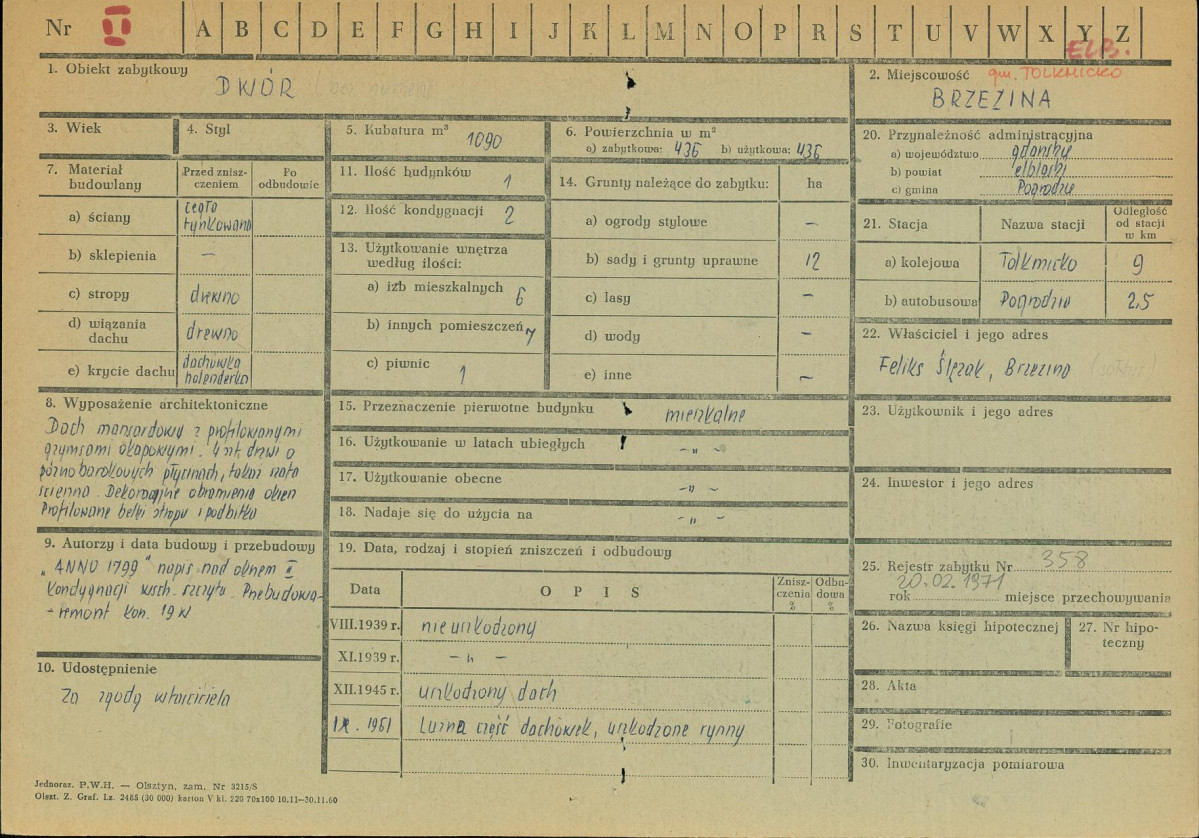 Nr II A B C D E F G H I J K L M N O P R S T U V W X Y Z
ELB.
1. Obiekt zabytkowy
DWÓR
2. Miejscowość gm. TOLKMICKO
BRZEZINA
3. Wiek
4. Styl
5. Kubatura m³ 1090
6. Powierzchnia w m²
a) zabytkowa: 436 b) użytkowa: 436
7. Materiał budowlany
Przed zniszczeniem
Po odbudowie
a) ściany cegła tynkowana
b) sklepienia —
c) stropy drewno
d) wiązania dachu drewno
e) krycie dachu dachówka holenderka
8. Wyposażenie architektoniczne
Dach mansardowy z profilowanymi
gzymsami okapowymi. 4 szt. drzwi o
późnobarokowych płycinach, takaż szafa
ścienna. Dekoracyjne obramienia okien
Profilowane belki stropu i podbitka
9. Autorzy i data budowy i przebudowy
"ANNO 1799" napis nad oknem II
kondygnacji wsch. szczytu. Przebudowa-
- remont kon. 19 w
10. Udostępnienie
Za zgodą właściciela
11. Ilość budynków 1
12. Ilość kondygnacji 2
13. Użytkowanie wnętrza
według ilości:
a) izb mieszkalnych 6
b) innych pomieszczeń 7
c) piwnic 1
14. Grunty należące do zabytku: ha
a) ogrody stylowe —
b) sady i grunty uprawne 12
c) lasy —
d) wody —
e) inne —
15. Przeznaczenie pierwotne budynku mieszkalne
16. Użytkowanie w latach ubiegłych — " —
17. Użytkowanie obecne — " —
18. Nadaje się do użycia na — " —
19. Data, rodzaj i stopień zniszczeń i odbudowy
Data
O P I S
Zniszczenia %
Odbudowa %
VIII.1939 r. nieuszkodzony
XI.1939 r. — " —
XII.1945 r. uszkodzony dach
IX. 1961 Luźna część dachówek, uszkodzone rynny
20. Przynależność administracyjna
a) województwo gdańskie
b) powiat elbląski
c) gmina Pogrodzie
21. Stacja
Nazwa stacji
Odległość od stacji w km
a) kolejowa Tolkmicko 9
b) autobusowa Pogrodzie 2,5
22. Właściciel i jego adres
Feliks Ślęzak, Brzezina (sołtys)
23. Użytkownik i jego adres
24. Inwestor i jego adres
25. Rejestr zabytku Nr 358
20.02.1971
rok miejsce przechowywania
26. Nazwa księgi hipotecznej
27. Nr hipoteczny
28. Akta
29. Fotografie
30. Inwentaryzacja pomiarowa
Jednoraz. P.W.H. — Olsztyn, zam. Nr 3215/S
Olszt. Z. Graf. Lz. 2485 (30 000) karton V kl. 220 70x100 10.11—30.11.60